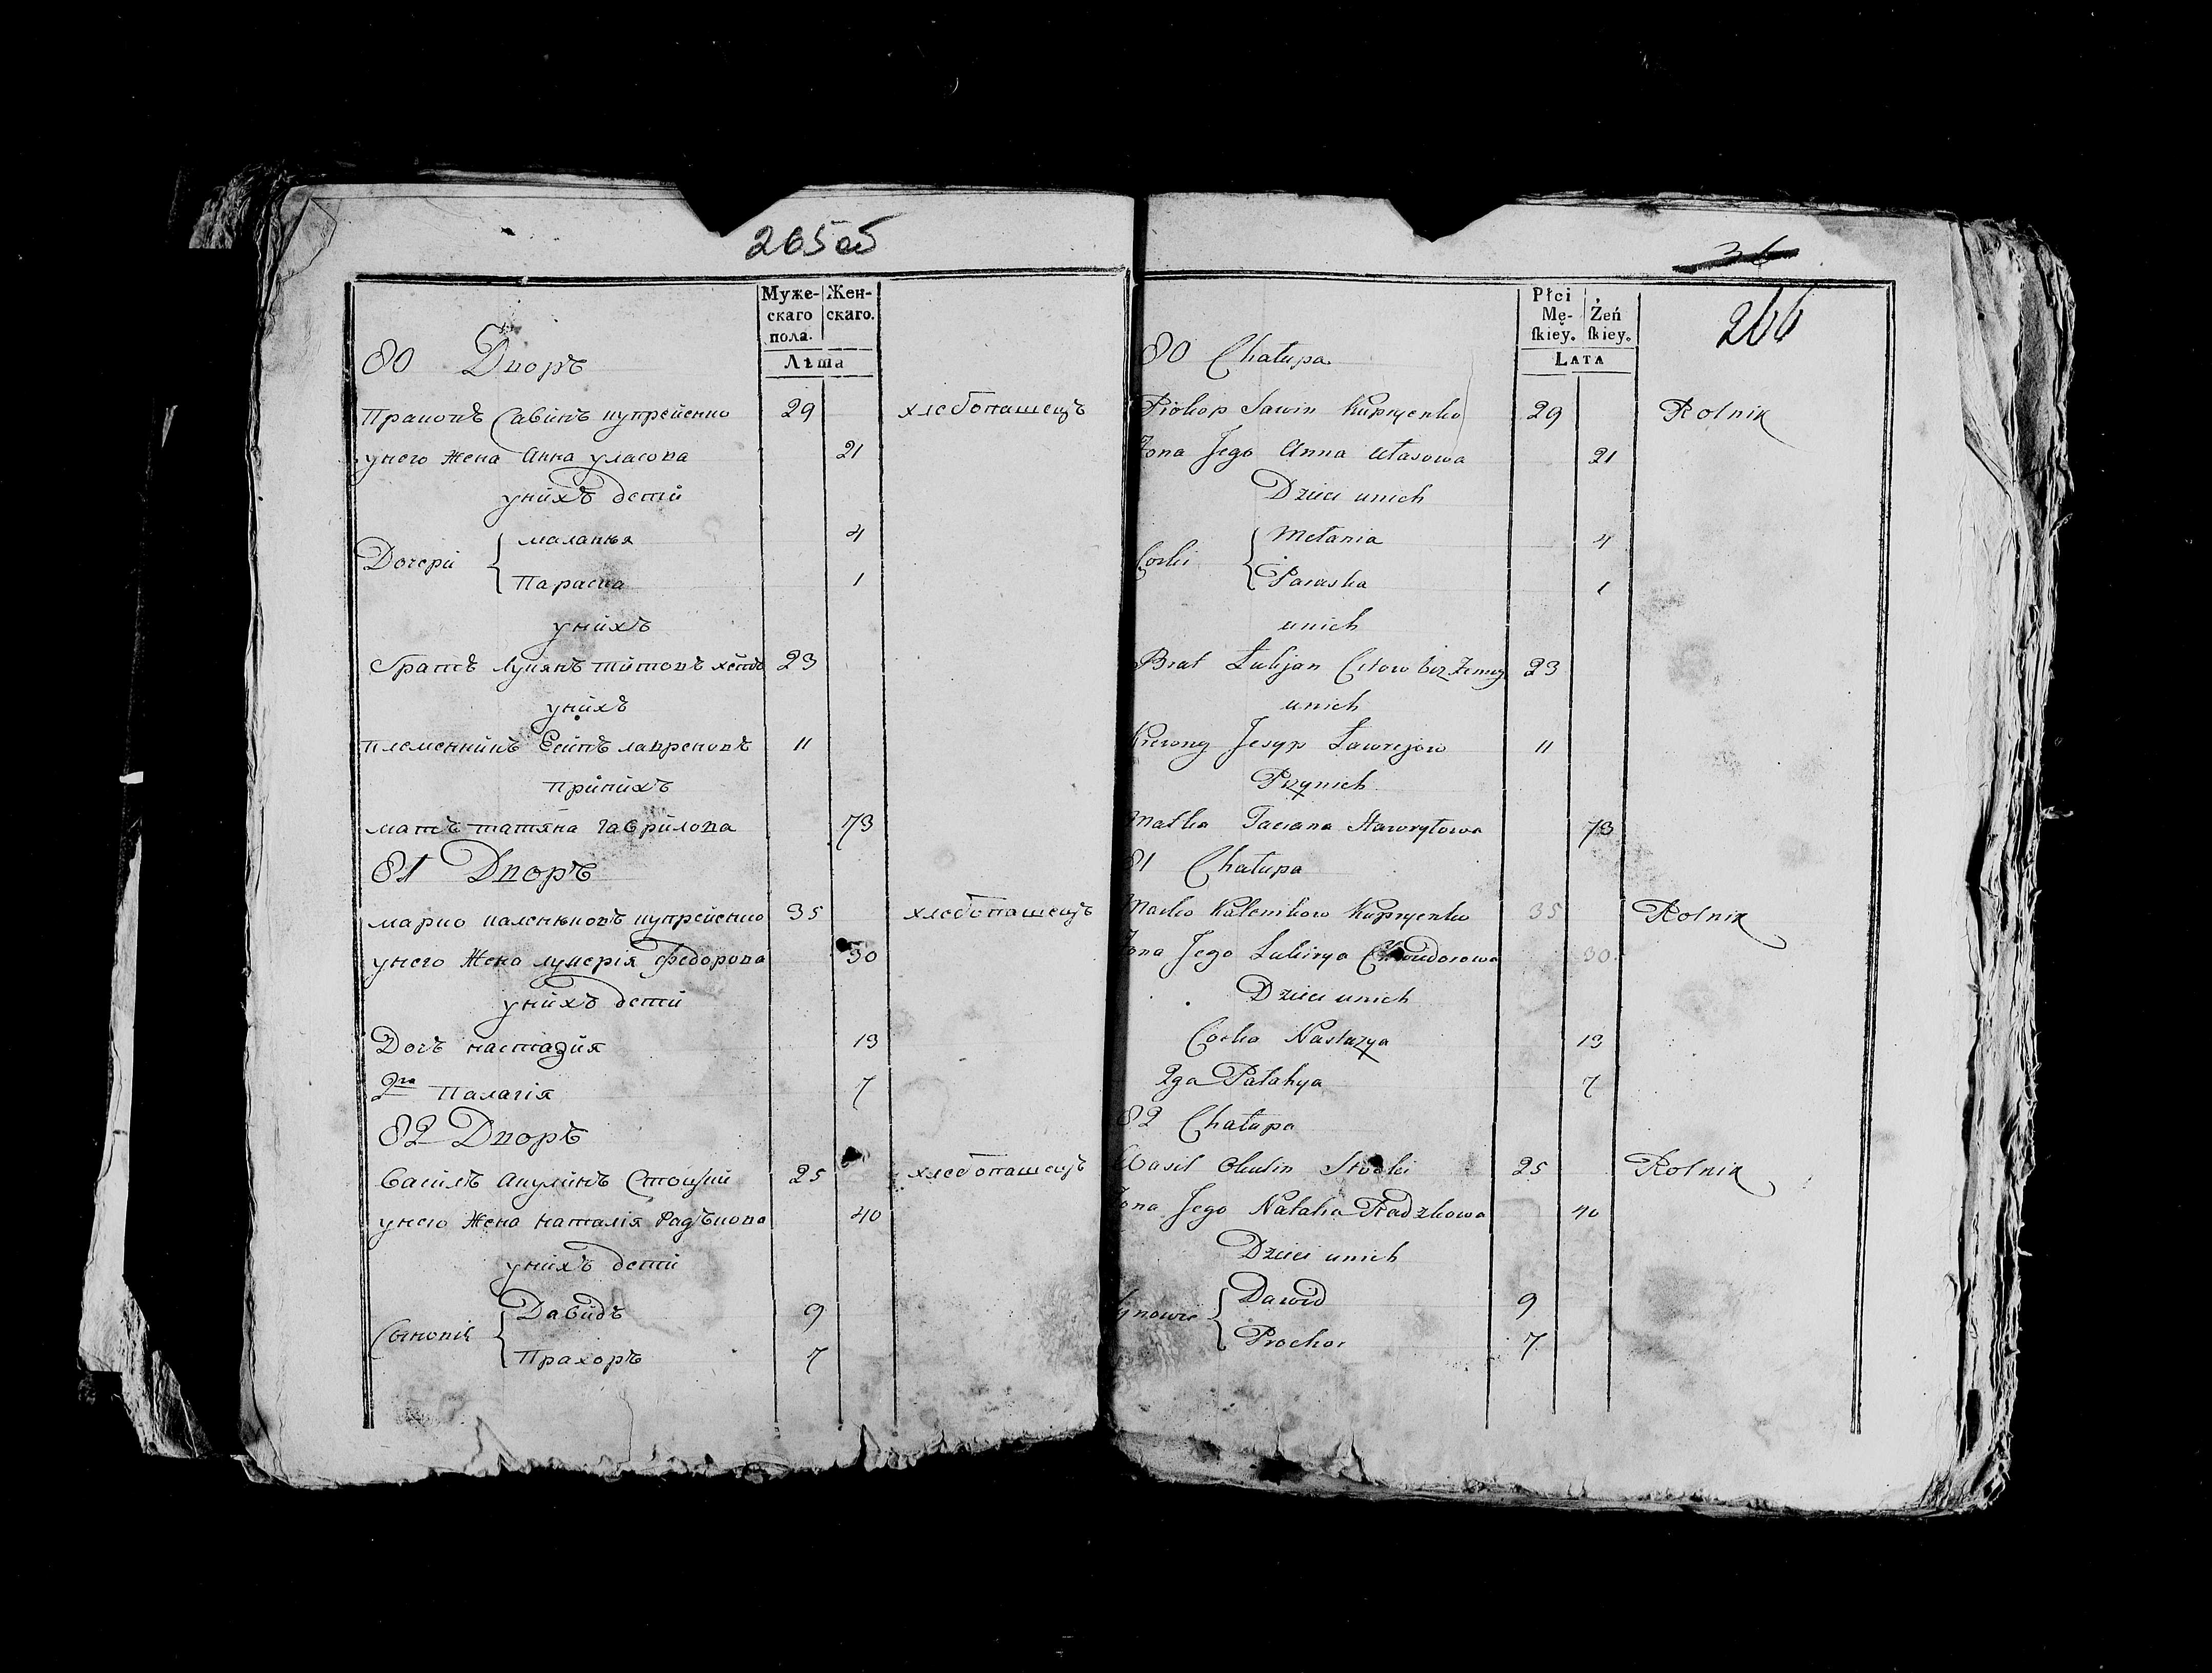 265об
Муже-
скаго
пола.
Жен-
скаго.
Лѣта
80 Дворъ
Пракопъ Савинъ купрейенко 29 хлебопашецъ
унего Жена Анна уласова 21
унихъ дети
Дочери { маланья 4
Параска 1
унихъ
братъ лукянъ титовъ 23
унихъ
племенникъ Есипъ лавреновъ 11
принихъ
мать татяна гаврилова 73
81 Дворъ
марко каленковъ купрейенко 35 хлебопашецъ
унего Жена лукерія федорова 30
унихъ дети
Дочъ настазия 13
2га Палагія 7
82 Дворъ
Василь акулинъ Стоцкий 25 хлебопашецъ
унего Жена наталія Радъкова 40
унихъ дети
Сыновія { Давидъ 9
Прахоръ 7
36
266
Płci
Mę-
skiey.
Żeń
skiey.
LATA
80 Chałupa
Prokop Sawin Kupryenko 29 Rolnik
Zona Jego Anna Ułasowa 21
Dzieci unich
Corki { Mełania 4
Paraska 1
unich
Brat Łukjan Citow bez Zenny 23
unich
Krewny Jesyp Ławrejow 11
Przynich
Matka Taciana Hawryłowa 73
81 Chałupa
Marko Kalenikow Kupryenko 35 Rolnik
Zona Jego Łukirya Chwidorowa 30
Dzieci unich
Corka Nastazya 13
2ga Pałahya 7
82 Chałupa
Wasil Okulin Stocki 25 Rolnik
Zona Jego Natalia Radzkowa 40
Dzieci unich
Synowie { Dawid 9
Prochor 7